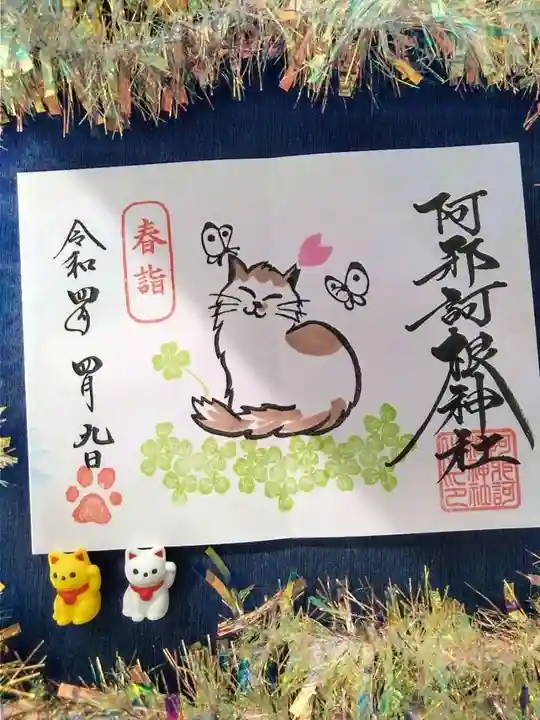 阿邪訶根神社
春詣
令和四年 四月九日